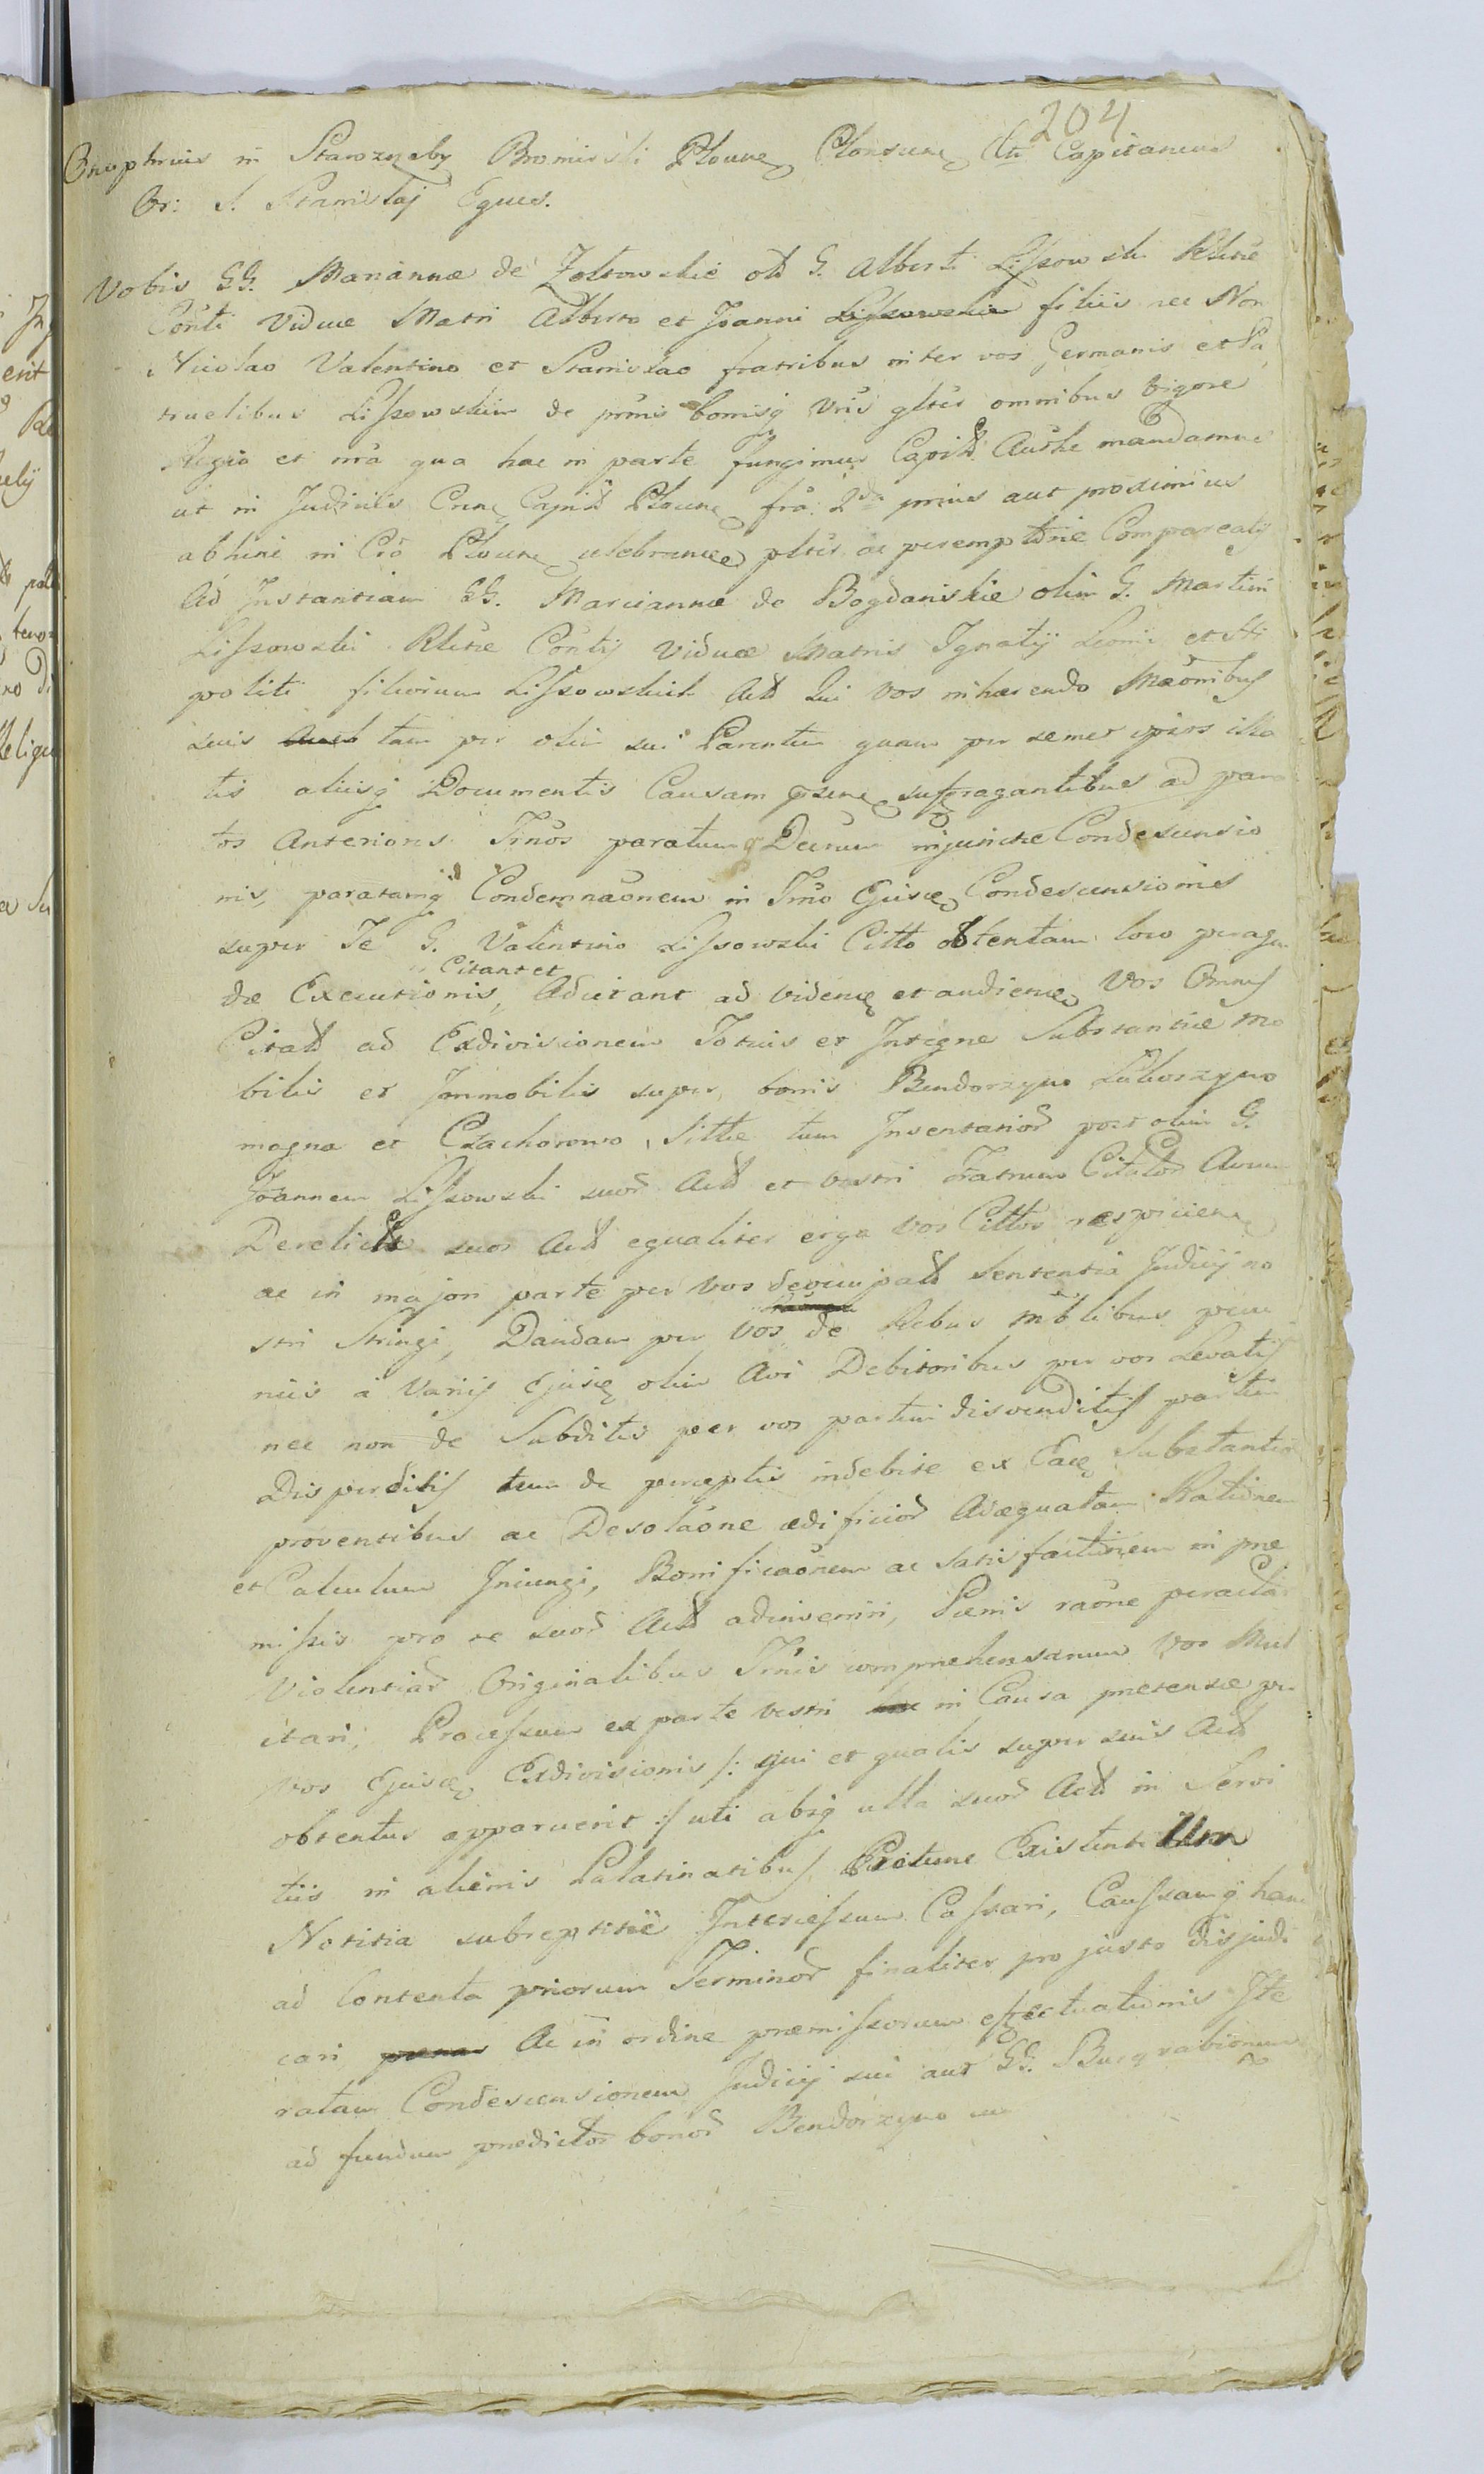 204
Onuphrius in Starozręby Bromirski Plocen Plonscen Capitaneus
Or: S. Stanislaj Eques.
Vobis GG. Marianna de Zoltowskie olt G. Alberti Lissowski Relictæ
Conti Viduæ Matri Alberto et Joanni Lissowskie filiis nec Non
Nicolao Valentino et Stanislao fratribus inter vos Germanis et Pa
truelibus Lissowskim de prmis bonisq vris gltér omnibus vigore
Regia et nra qua hac in parte fungimur Capitli Authe mandamus
ut in Judiciis Capitli Plocen 2da prius aut proximius
abhinc in Cro Plocen celebrances pltér ac peremptorie Compareatis
Ad Instantiam GG. Mariannæ de Bogdanskie olim G. Martini
Lissowski Relictæ Contis viduæ Matris Ignatij Leonis et Hi
politi filiorum Lissowskich Act Qui vos inhærendo Maonibus
suis tam per olim sui Parentem quam per semet ipsos illa
tis aliisq Documentis Causam psene suffragantibus ad para
tos Anterioris Trnos paratumq Decrum injunctæ Condescensio
nis, paratamq Condemnaonem in Trno Ejusce Condescensionis
super Te G. Valentino Lissowski Citto obtentam loco peragen
Citant et
dæ Executionis, Adcitant ad videnc et audienc Vos Omnes
Citatt ad Exdivisionem Totius et Integræ Substantiæ Mo
bilis et Immobilis super bonis Bendorzyno Luborzyno
magna et Czachorowo Sittæ tum Inventarior post olim G.
Joannem Lissowski suor Act et vestri Fratrum Citator Avum
Derelicta suos Act equaliter erga vos Cittos respiciens
ac in majori parte per vos deoccupatt Sententia Judicij no
stri Stringi, Dandam per Vos de Rebus mblibus pecu
niis à Variis Ejusce olim Avi Debitoribus per vos Levatis
nec non de Subditis peer vos partim disvenditis partim
Disperditis tum de perceptis indebite ex Eace Substantia
proventibus ac Desolaone ædificior Adæquatam Rationem
et Calculum Iniungi, Bonificaonem ac satisfactionem in præ
missis pro se suor Act adinveniri, Pænis raone peractar
Violentiar Originalibus Trnis comprehensarum vos Mul
ctari, Processum ex parte vestri in Causa prætensæ per
vos Ejusce Exdivisionis /: qui et qualis super suis Act
obtentus apparuerit :/ uti absq ulla suor Act in Servi
tiis in alienis Palatinatibus Protunc Existenti
Notitia subreptitié Interiessum Cassari, Caussamq hanc
ad Contenta priorum Terminor finaliter pro justo disjudi
cari Ac in ordine præmissorum effectuationis Ite
ratam Condescensionem Judicij sui aut GG. Burgrabionum
ad fundum prædictor bonor Bendorzyno